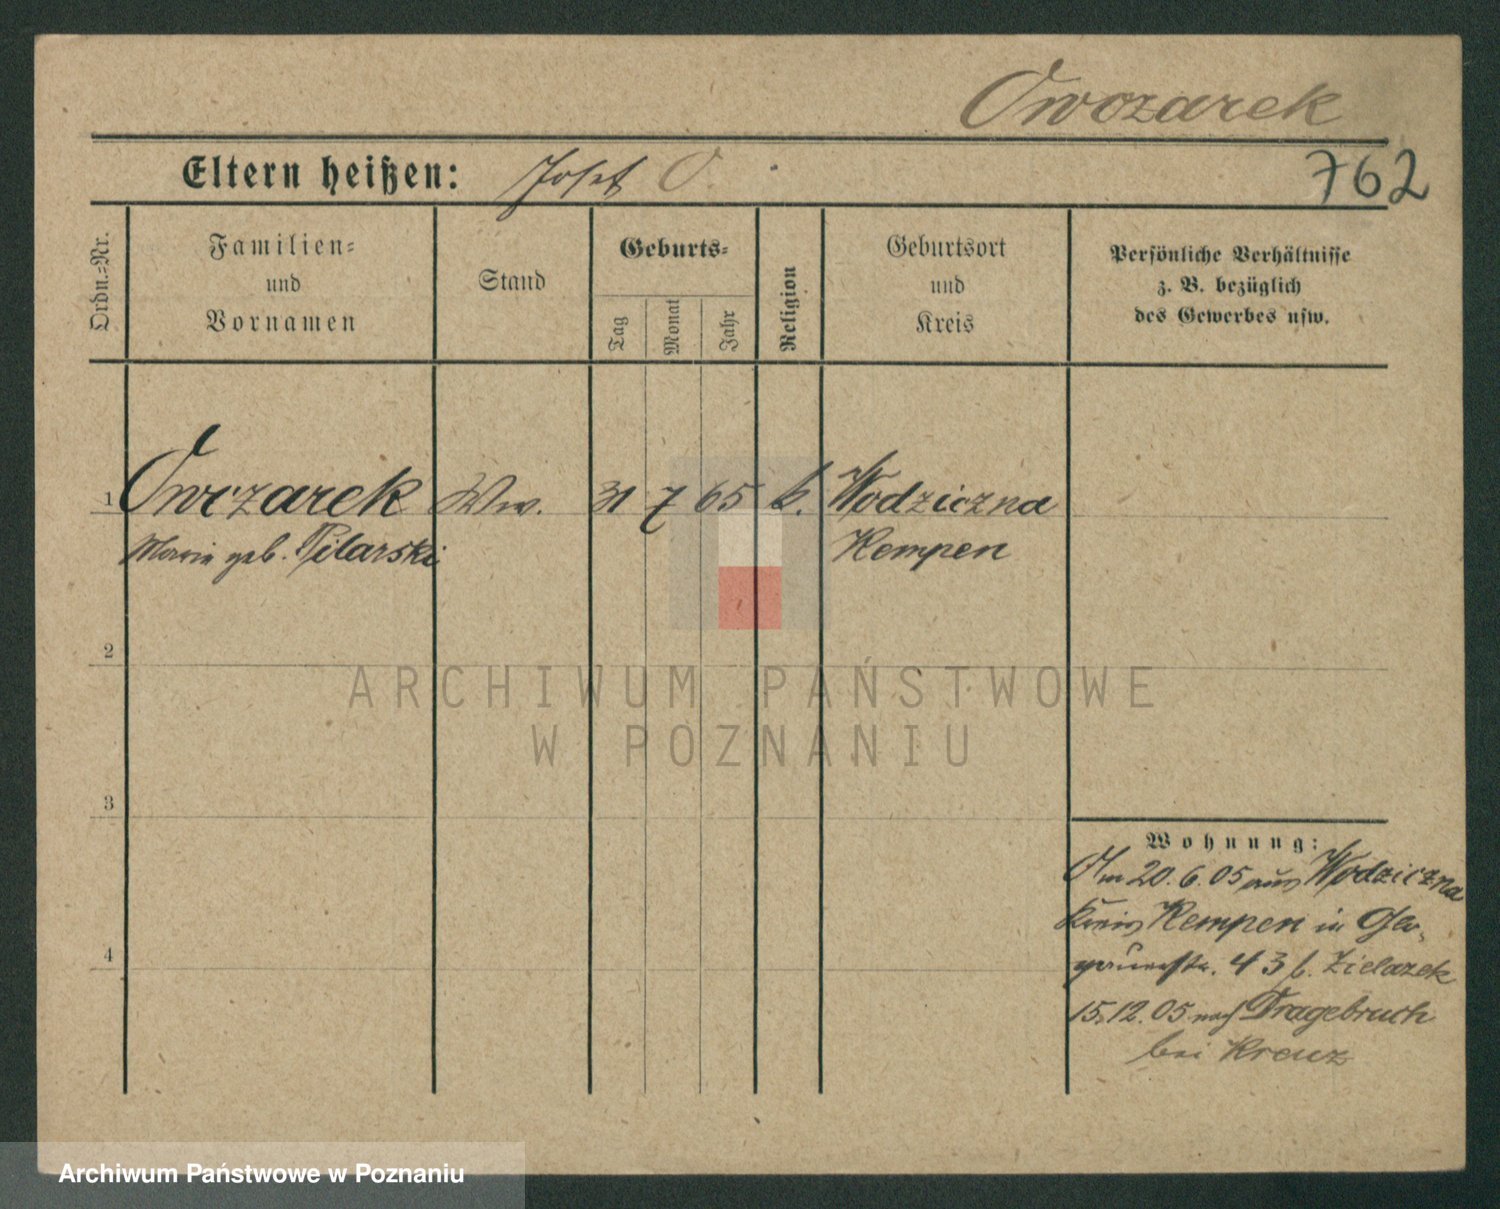 Owczarek
Eltern heißen: Josef O.
762
Ordn.=Nr.
Familien=
und
Vornamen
Stand
Geburts=
Tag
Monat
Jahr
Religion
Geburtsort
und
Kreis
Persönliche Verhältnisse
z. B. bezüglich
des Gewerbes usw.
1 Owczarek Ww. 31 7 65 k. Wodziczna
Marie geb. Pilarski Kempen
2
ARCHIWUM PAŃSTWOWE
W POZNANIU
3
Wohnung:
Am 20.6.05 aus Wodziczna
Kreis Kempen in Glo-
gauerstr. 43 b. Zielazek
4
15.12.05 nach Dragebruch
bei Kreuz
Archiwum Państwowe w Poznaniu